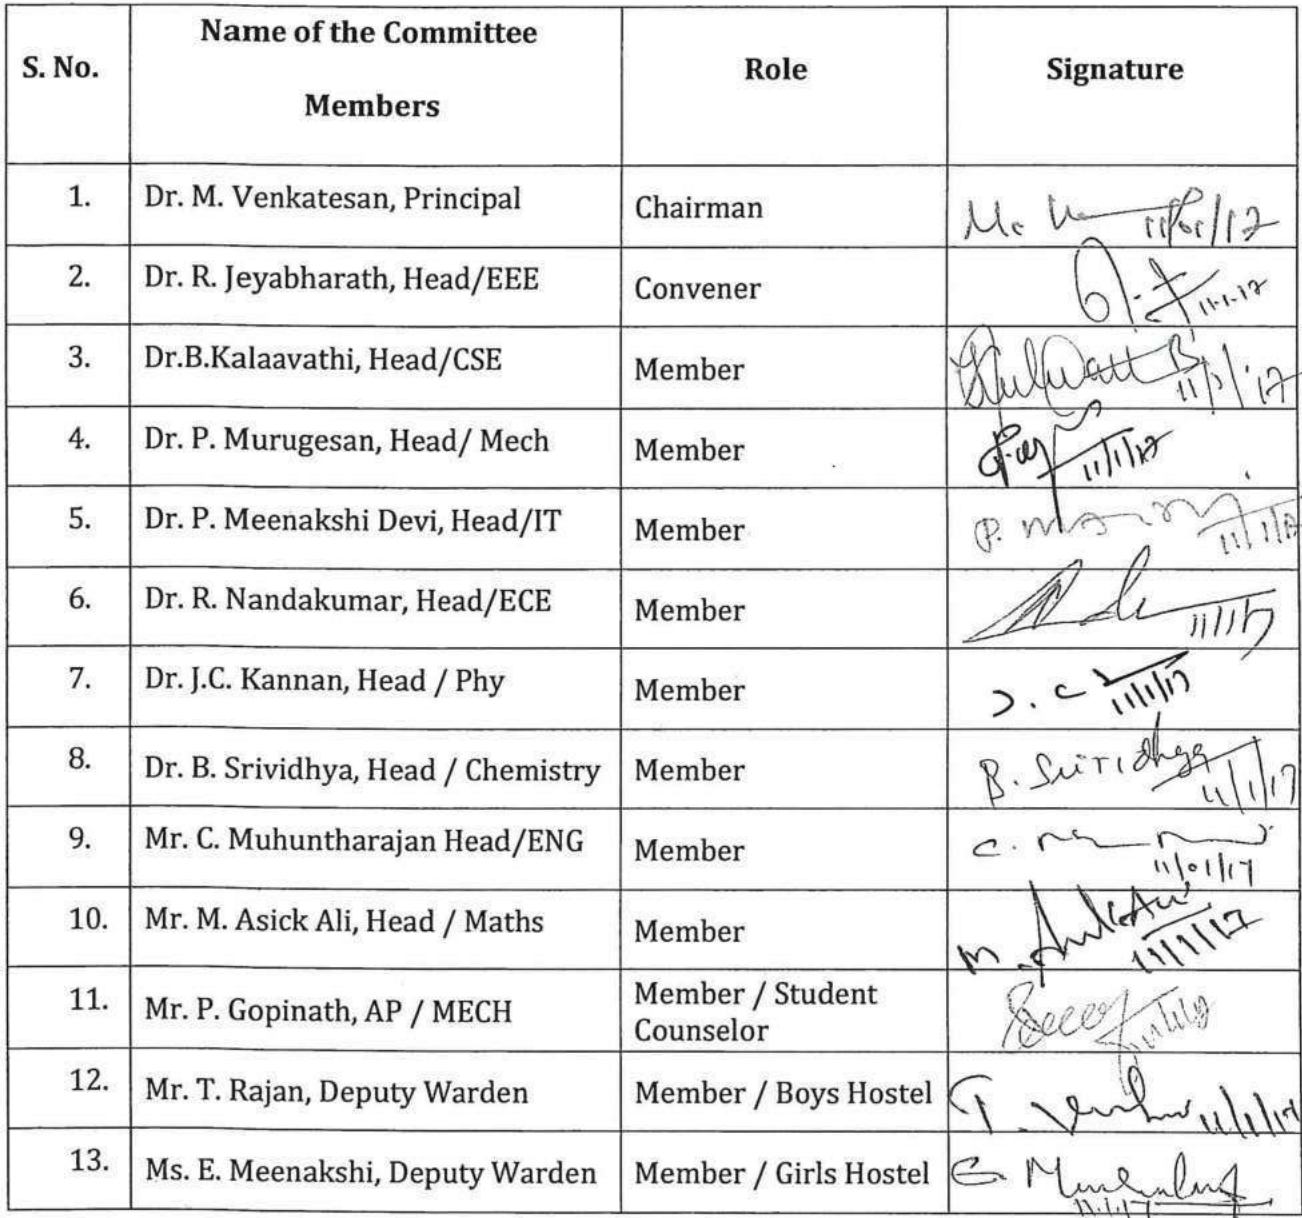 S. No.
Name of the Committee
Members
Role
Signature
1.
Dr. M. Venkatesan, Principal
Chairman
11/01/17
2.
Dr. R. Jeyabharath, Head/EEE
Convener
11.1.17
3.
Dr.B.Kalaavathi, Head/CSE
Member
11/1/17
4.
Dr. P. Murugesan, Head/ Mech
Member
11/1/17
5.
Dr. P. Meenakshi Devi, Head/IT
Member
11/1/17
6.
Dr. R. Nandakumar, Head/ECE
Member
11/1/17
7.
Dr. J.C. Kannan, Head / Phy
Member
J. C 11/1/17
8.
Dr. B. Srividhya, Head / Chemistry
Member
B. Srividhya 11/1/17
9.
Mr. C. Muhuntharajan Head/ENG
Member
11/01/17
10.
Mr. M. Asick Ali, Head / Maths
Member
11/1/17
11.
Mr. P. Gopinath, AP / MECH
Member / Student
Counselor
12.
Mr. T. Rajan, Deputy Warden
Member / Boys Hostel
11/1/17
13.
Ms. E. Meenakshi, Deputy Warden
Member / Girls Hostel
11.1.17